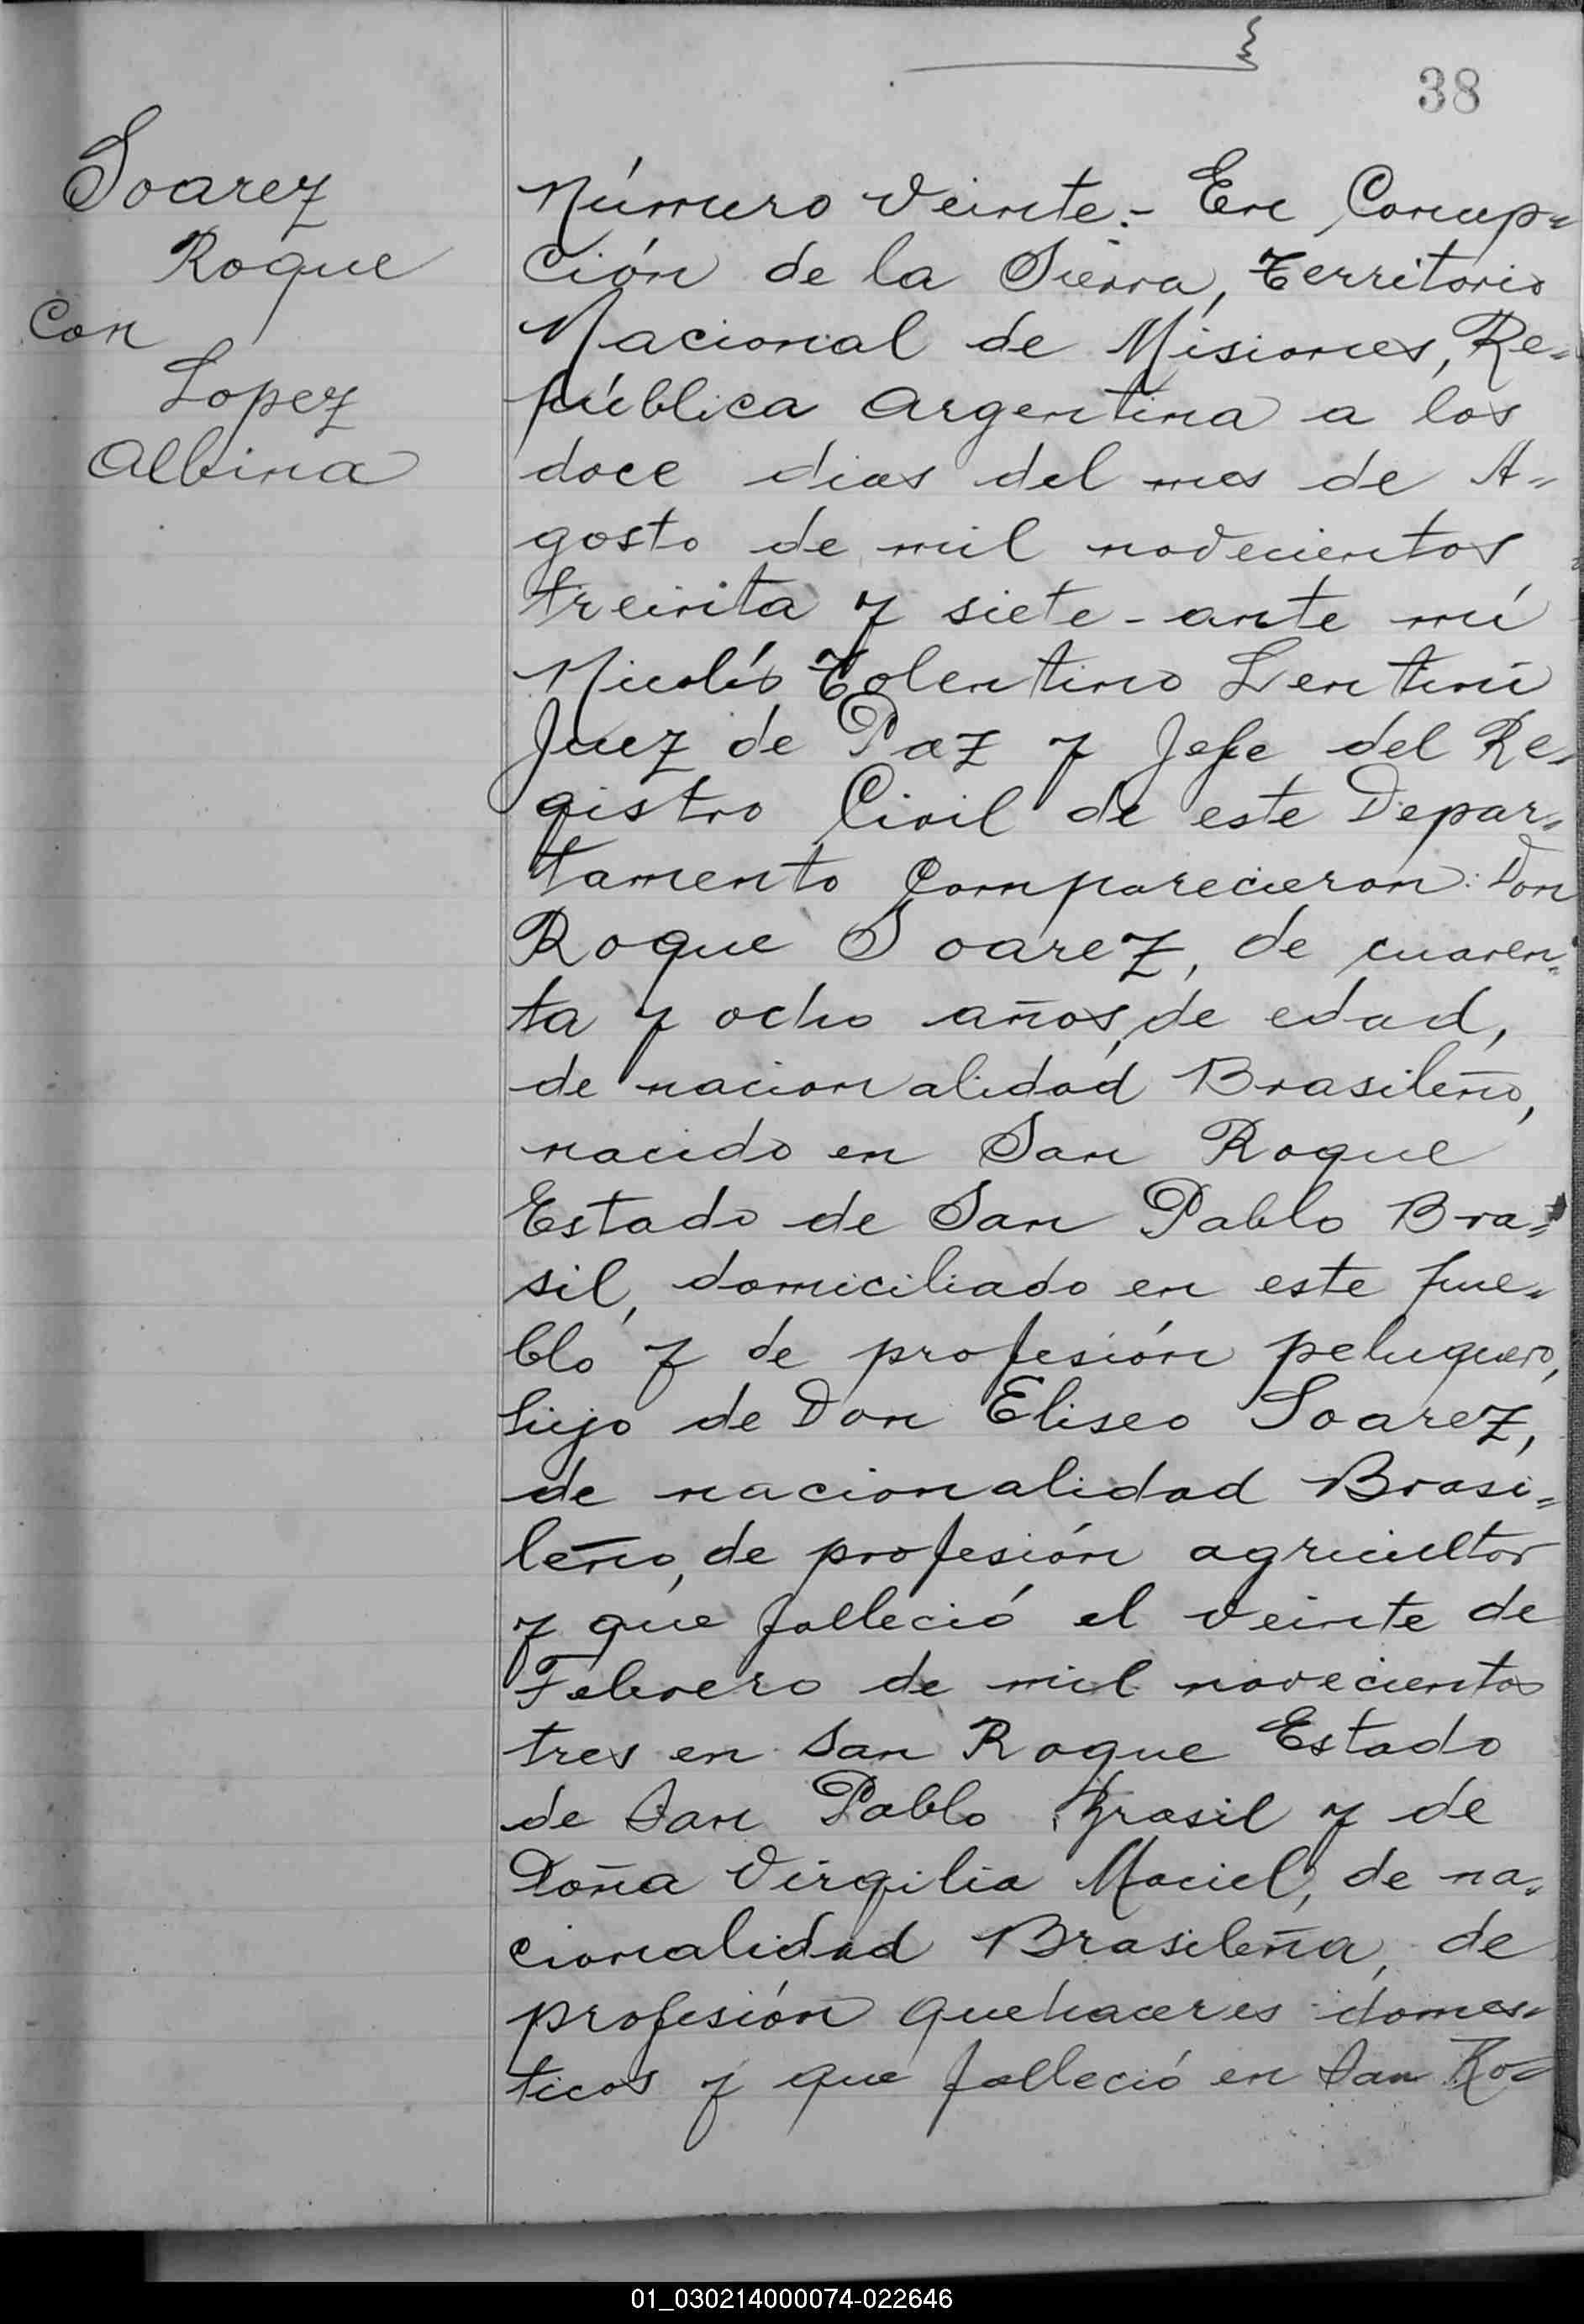 38
Soarez
Roque
Con
Lopez
Albina
Número veinte.- En Concep=
ción de la Sierra, Territorio
Nacional de Misiones, Re=
pública Argentina a los
doce dias del mes de A=
gosto de mil novecientos
treinta y siete - ante mí
Nicolás Tolentino Lentini
Juez de Paz y Jefe del Re=
gistro Civil de este Depar=
tamento Comparecieron: Don
Roque Soarez, de cuaren=
ta y ocho años, de edad,
de nacionalidad Brasileño,
nacido en San Roque
Estado de San Pablo Bra=
sil, domiciliado en este pue=
blo y de profesión peluquero,
hijo de Don Eliseo Soarez,
de nacionalidad Brasi=
leño, de profesión agricultor
y que falleció el veinte de
Febrero de mil novecientos
tres en San Roque Estado
de San Pablo Brasil y de
Doña Virgilia Maciel, de na=
cionalidad Brasileña, de
profesión quehaceres domes=
ticos y que falleció en San Ro=
01_030214000074-022646